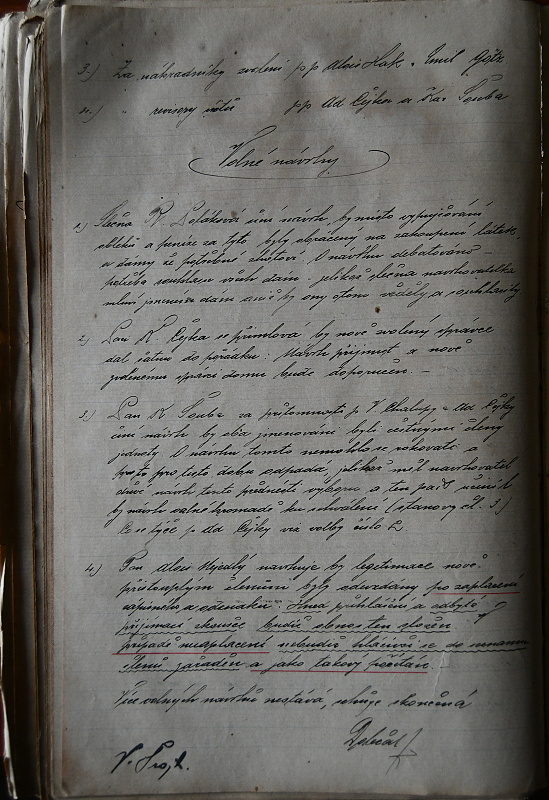 3.) Za náhradníky zvoleni pp Alois Hák a Emil Götz
4.) " revisory účtů pp Ad Cýka a Kar Souba
Volné návrhy
1.) Slečna R. činí návrh by místo vypůjčování
obleků a peníze za tyto byly obráceny na zakoupení látek
a dámy že potřebné zhotoví. O návrhu debatováno –
potřeba souhlasu všech dam. jelikož slečna navrhovatelka
mluví jmenem dam aniž by ony o tom věděly a souhlasily
2.) Pan K. Cýka se přimlouvá by nově zvolený správce
dal šatnu do pořádku. Návrh přijmut a nově
zvolenému správci domu bude doporučen. –
3.) Pan K Souba za přítomnosti p V. Chalupy a Ad Cýky
činí návrh by oba jmenováni byli čestnými členy
jednoty. O návrhu tomto nemohlo se rokovati a
proto pro tuto dobu odpadá, jelikož měl navrhovatel
dříve návrh tento přednésti výboru a ten pak učiniti
by návrh valné hromadě ku schválení (stanovy čl. 3.)
Co se týče p Ad Cýky viz volby číslo 2.
4.) Pan Alois navrhuje by legitimace nově
přistouplým členům byly odevzdány po zaplacení
zápisného a odznaku. Hned přihlášení a odbyté
přijímací zkoušce budiž obnos ten složen. V
případě nezaplacení nebudiž hlásivší se do seznamu
členů zařaděn a jako takový počítán.
Více volných návrhů nestává, schůze skončená
V. Srojt.